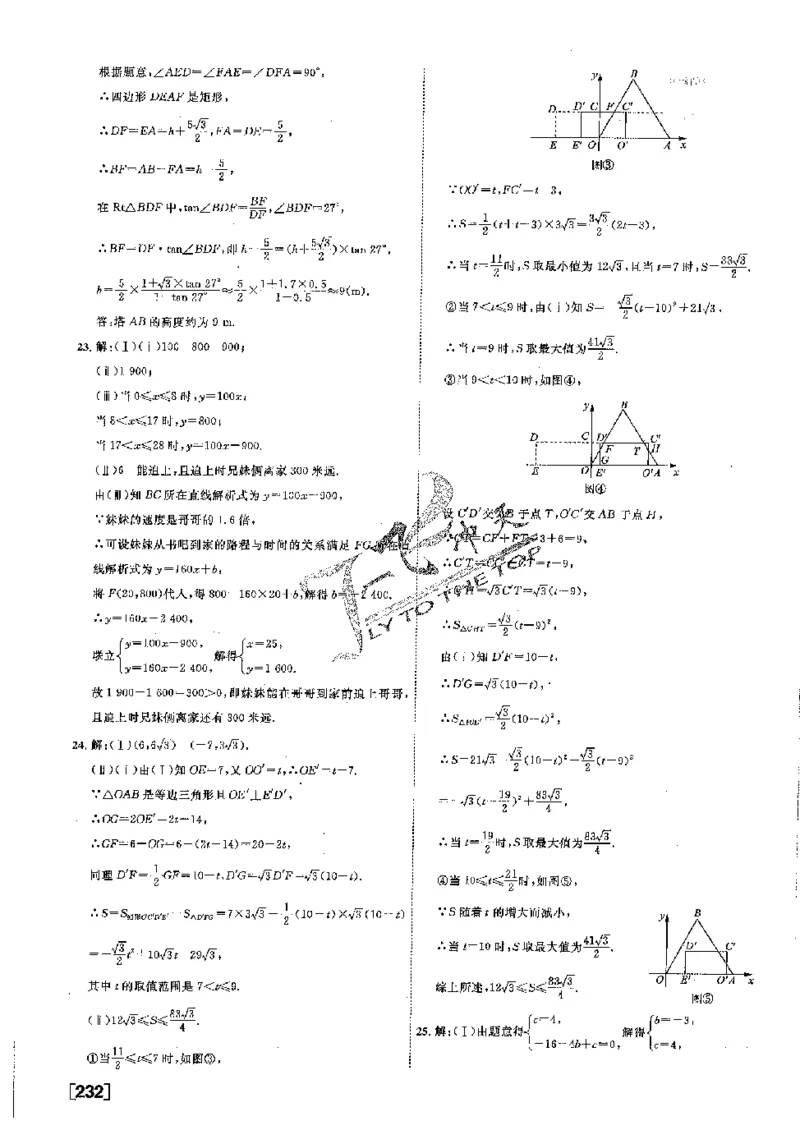 根据题意,∠AED=∠FAE=∠DFA=90°,
∴四边形 DEAF 是矩形,
∴DF=EA=h+5√3/2,FA=DE=5/2,
∴BF=AB-FA=h-5/2,
在 Rt△BDF 中,tan∠BDF=BF/DF,∠BDF=27°,
∴BF=DF·tan∠BDF,即 h-5/2=(h+5√3/2)×tan 27°,
h=5/2×(1+√3×tan 27°)/(1-tan 27°)≈5/2×(1+1.7×0.5)/(1-0.5)≈9(m).
答:塔 AB 的高度约为 9 m.
23.解:(Ⅰ)(ⅰ)100 800 900;
(ⅱ)1 900;
(ⅲ)当 0≤x≤8 时,y=100x;
当 8<x≤17 时,y=800;
当 17<x≤28 时,y=100x-900.
(Ⅱ)6 能追上,且追上时兄妹俩离家 300 米远.
由(ⅲ)知 BC 所在直线解析式为 y=100x-900,
∵妹妹的速度是哥哥的 1.6 倍,
∴可设妹妹从书吧到家的路程与时间的关系满足 FG 所在直
线解析式为 y=160x+b,
将 F(20,800)代入,得 800=160×20+b,解得 b=-2 400.
∴y=160x-2 400,
联立{y=100x-900, y=160x-2 400, 解得{x=25, y=1 600.
故 1 900-1 600=300>0,即妹妹能在哥哥到家前追上哥哥,
且追上时兄妹俩离家还有 300 米远.
24.解:(Ⅰ)(6,6√3) (-7,3√3).
(Ⅱ)(ⅰ)由(Ⅰ)知 OE=7,又 OO'=t,∴OE'=t-7.
∵△OAB 是等边三角形且 OE'⊥E'D',
∴OG=2OE'=2t-14,
∴GF=6-OG=6-(2t-14)=20-2t,
同理 D'F=1/2GF=10-t,D'G=√3D'F=√3(10-t).
∴S=S矩形O'C'D'E'-S△D'FG=7×3√3-1/2(10-t)×√3(10-t)
=-√3/2t²+10√3t-29√3,
其中 t 的取值范围是 7<t≤9.
(ⅱ)12√3≤S≤83√3/4.
①当11/2≤t≤7 时,如图③,
[232]
y B
D D' C F C'
E E' O O' A x
图③
∵OO'=t,FC'=t-3,
∴S=1/2(t+t-3)×3√3=3√3/2(2t-3),
∴当 t=11/2时,S 取最小值为 12√3,且当 t=7 时,S=33√3/2.
②当 7<t≤9 时,由(ⅰ)知 S=-√3/2(t-10)²+21√3,
∴当 t=9 时,S 取最大值为41√3/2.
③当 9<t<10 时,如图④,
y B
D C D' C'
F T H
G
E O E' O'A x
图④
设 C'D'交AB 于点 T,O'C'交 AB 于点 H,
∵CT=CF+FT=3+6=9,
∴C'T=CC'-CT=t-9,
∴C'H=√3C'T=√3(t-9),
∴S△C'HT=√3/2(t-9)²,
由(ⅰ)知 D'F=10-t,
∴D'G=√3(10-t),
√3/2(10-t)²,
∴S=21√3-√3/2(10-t)²-√3/2(t-9)²
=-√3(t-19/2)²+83√3/4,
∴当 t=19/2时,S 取最大值为83√3/4.
④当 10≤t≤21/2时,如图⑤,
∵S 随着 t 的增大而减小,
∴当 t=10 时,S 取最大值为41√3/2.
综上所述,12√3≤S≤83√3/4.
y B
D' C'
O E' O'A x
图⑤
25.解:(Ⅰ)由题意得{c=4, -16-4b+c=0, 解得{b=-3, c=4,
LY TO THE TOP